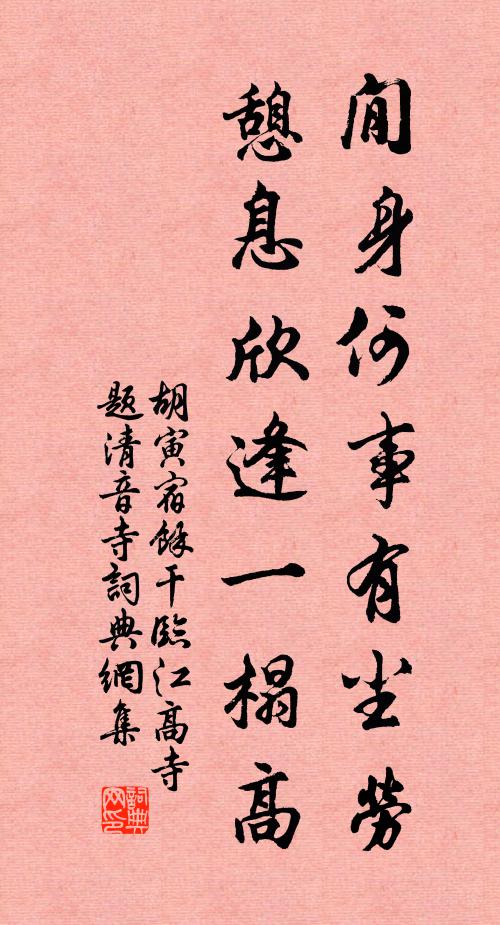 閒身何事有尘勞
憩息欣逢一榻高
胡寅宿餘干臨江高寺
题清音寺詞典網集
詞典网印